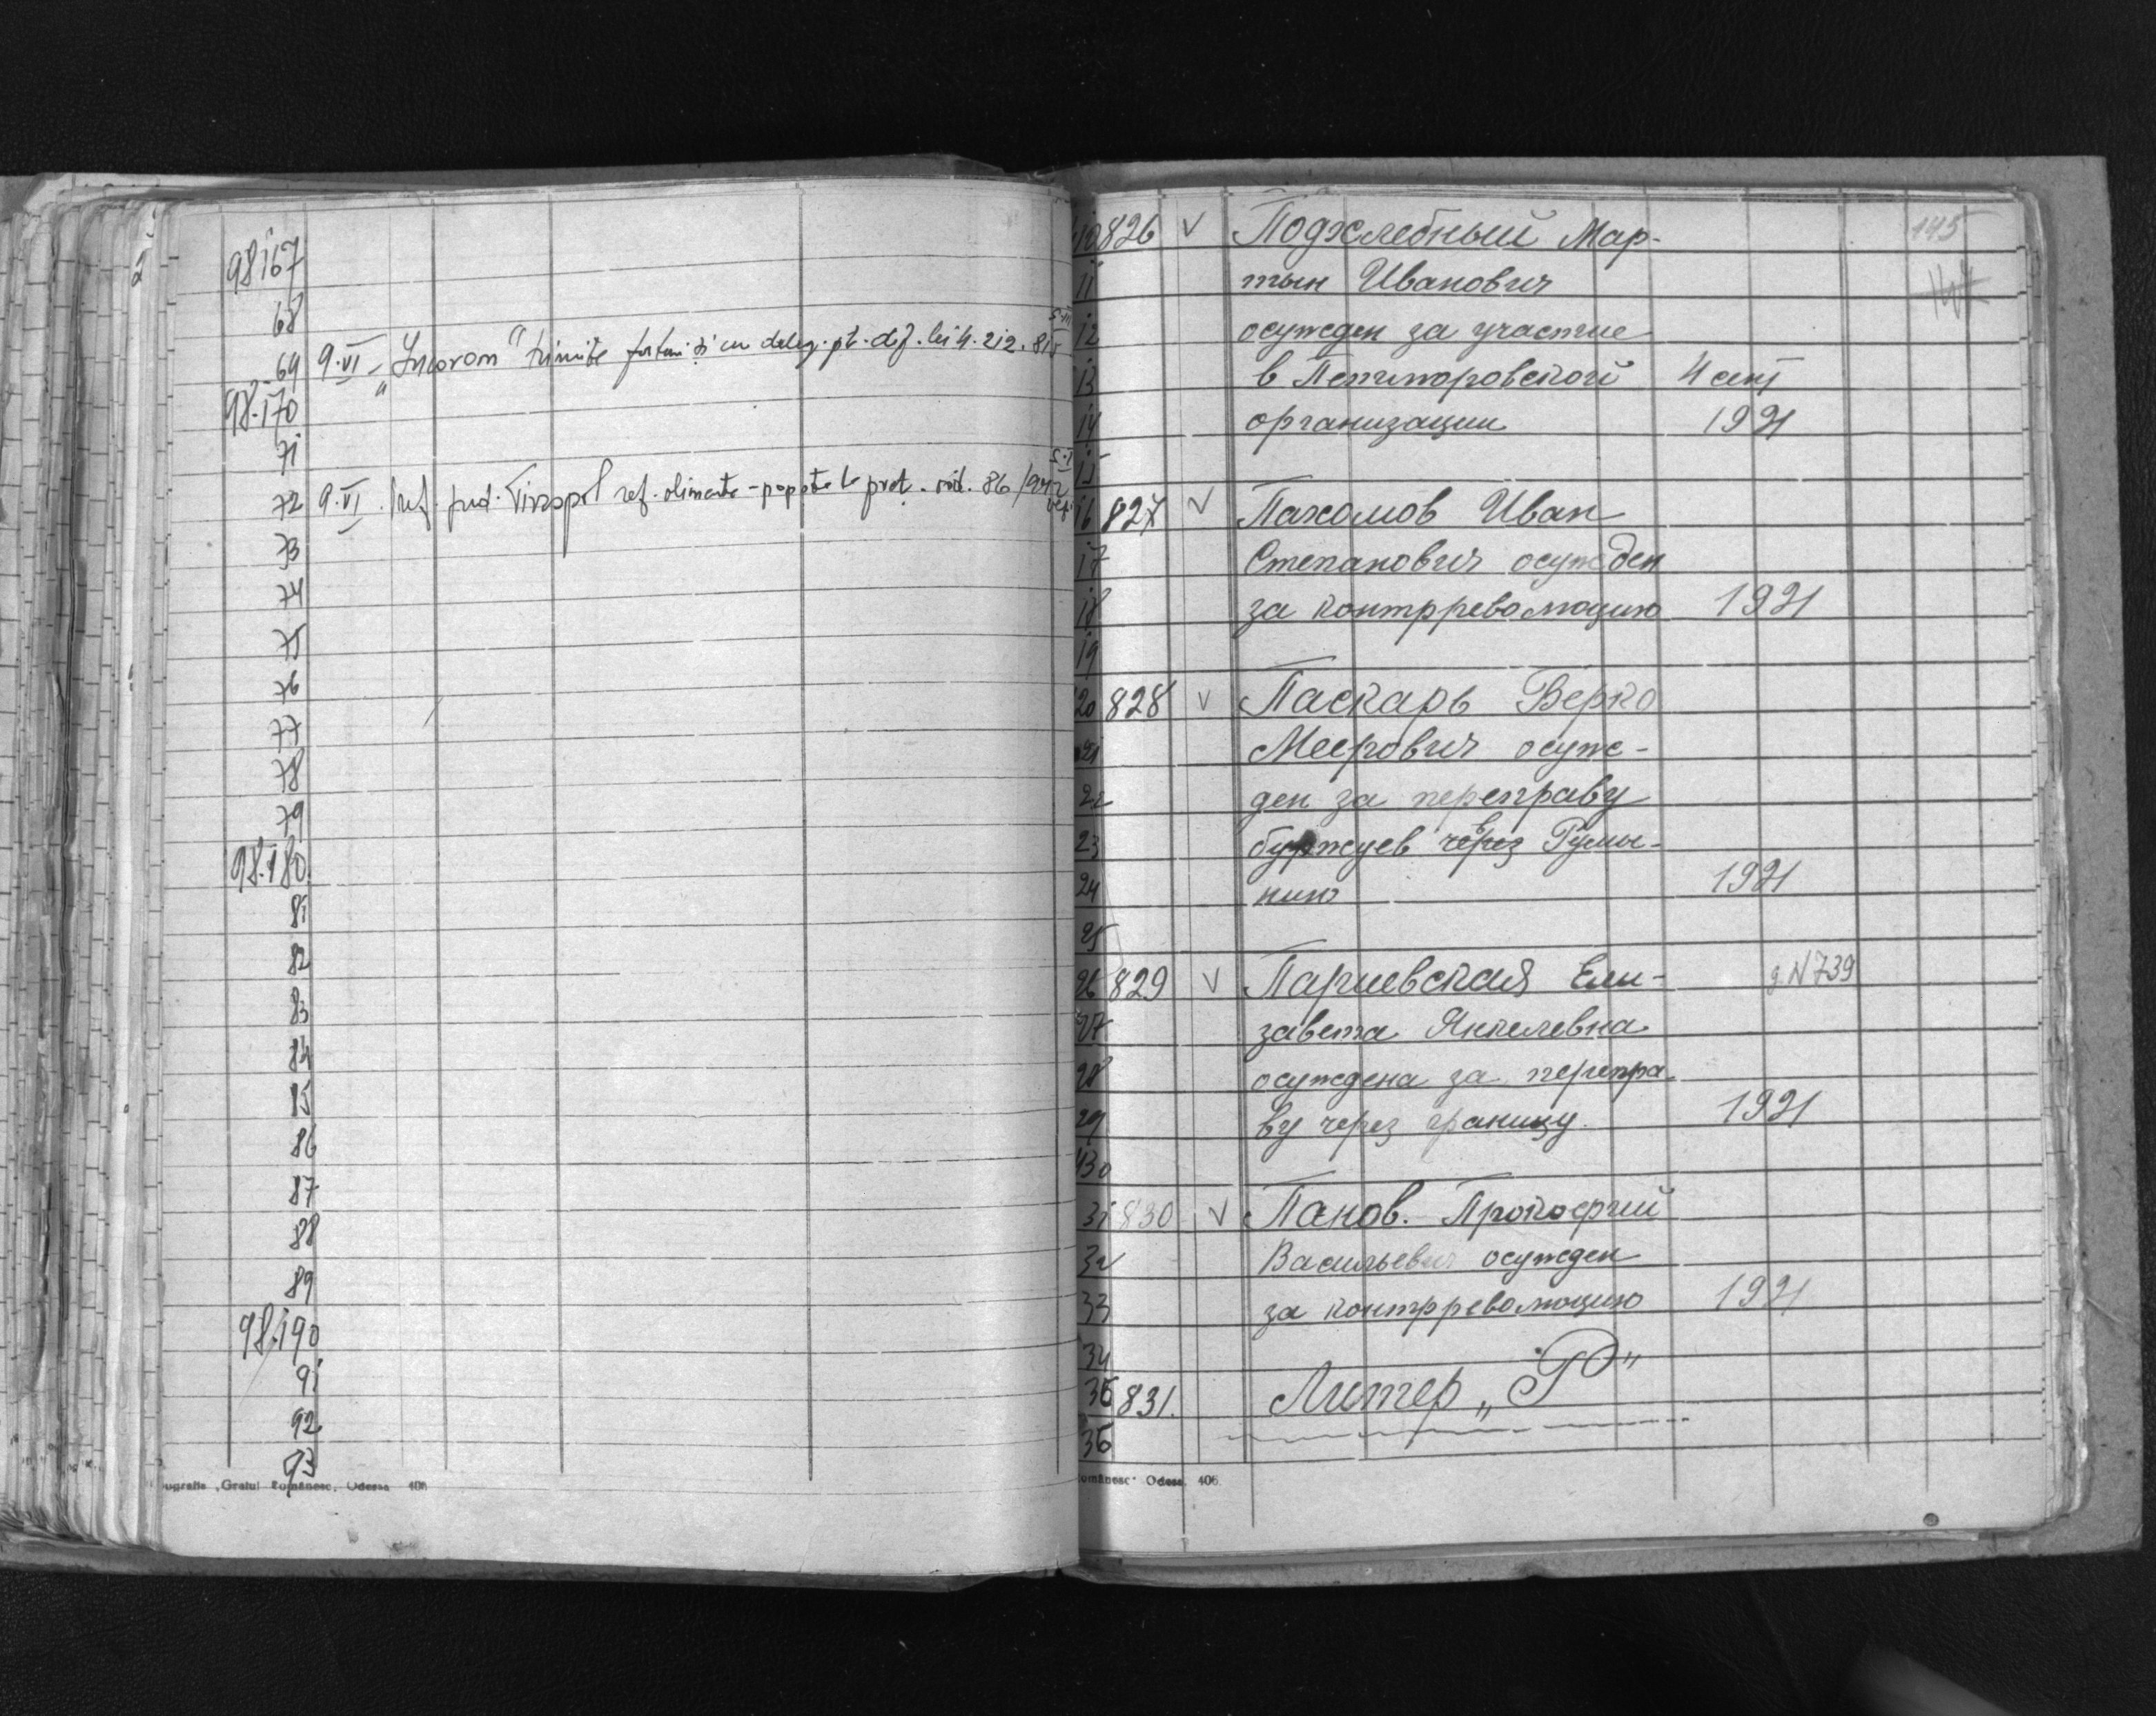 98167
68
69 9·VI „Incorom“ trimite facturi și cu deleg. pt. dif. lei 4.212.815
98·170
71
72 9·VI. Pref. jud. Tiraspol ref. alimente - popote 86/942
73
74
75
76
77
78
79
98.180
81
82
83
84
85
86
87
88
89
98.190
91
92
93
ografia „Graiul Românesc, Odessa 406
145
10 826 V Подхлебный Мар-
11 тын Иванович
12 осужден за участие
13 в Петлюровской 4 сент
14 организации 1921
15
16 827 V Пахомов Иван
17 Степанович осужден
18 за контрреволюцию 1921
19
20 828 V Паскарь Берко
21 Меерович осуж-
22 ден за переправу
23 буржуев через Румы-
24 нию 1921
25
26 829 V Париевская Ели- д. N 739
27 завета Янкелевна
28 осуждена за перепра
29 ву через границу. 1921
430
31 830 V Панов. Прокофий
32 Васильевич осужден
33 за контрреволюцию 1921
34
35 831. Литер „Р“
36
omânesc“ Odesa, 406.